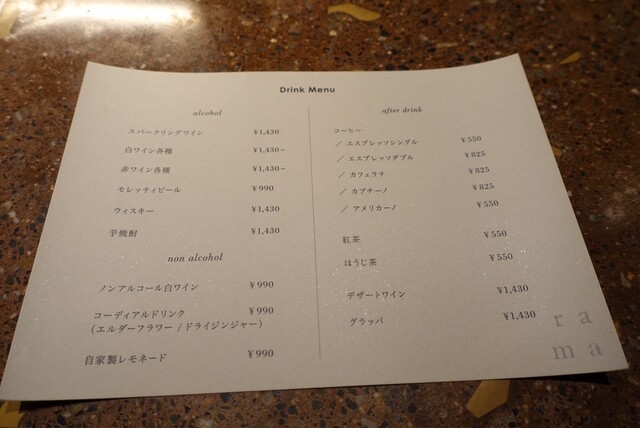 Drink Menu
alcohol
スパークリングワイン ¥1,430
白ワイン各種 ¥1,430~
赤ワイン各種 ¥1,430~
モレッティビール ¥990
ウィスキー ¥1,430
芋焼酎 ¥1,430
non alcohol
ノンアルコール白ワイン ¥990
コーディアルドリンク ¥990
(エルダーフラワー / ドライジンジャー)
自家製レモネード ¥990
after drink
コーヒー
/ エスプレッソシングル ¥550
/ エスプレッソダブル ¥825
/ カフェラテ ¥825
/ カプチーノ ¥825
/ アメリカーノ ¥550
紅茶 ¥550
ほうじ茶 ¥550
デザートワイン ¥1,430
グラッパ ¥1,430
ra
ma